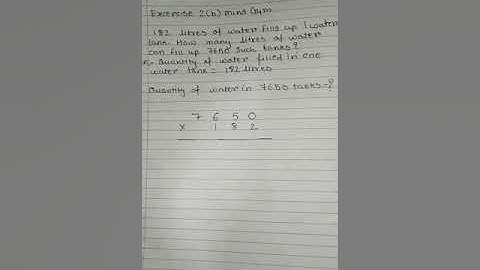 Excercise 2(b) mind Gym
182 litres of water fills up 1 water
tank. How many litres of water
can fill up 7650 such tanks?
Quantity of water filled in one
water tank = 182 litres
Quantity of water in 7650 tanks = ?
7 6 5 0
x 1 8 2